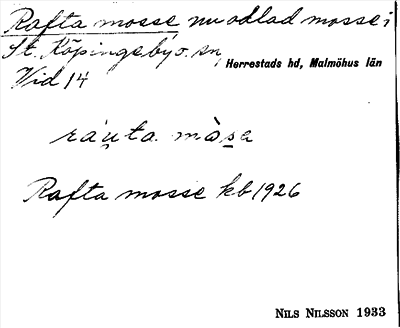 Rafta mosse nu odlad mosse i
St. Köpingeby o. sn, Herrestads hd, Malmöhus län
Vid 14
ráu̯ta màsa
Rafta mosse kb 1926
NILS NILSSON 1933